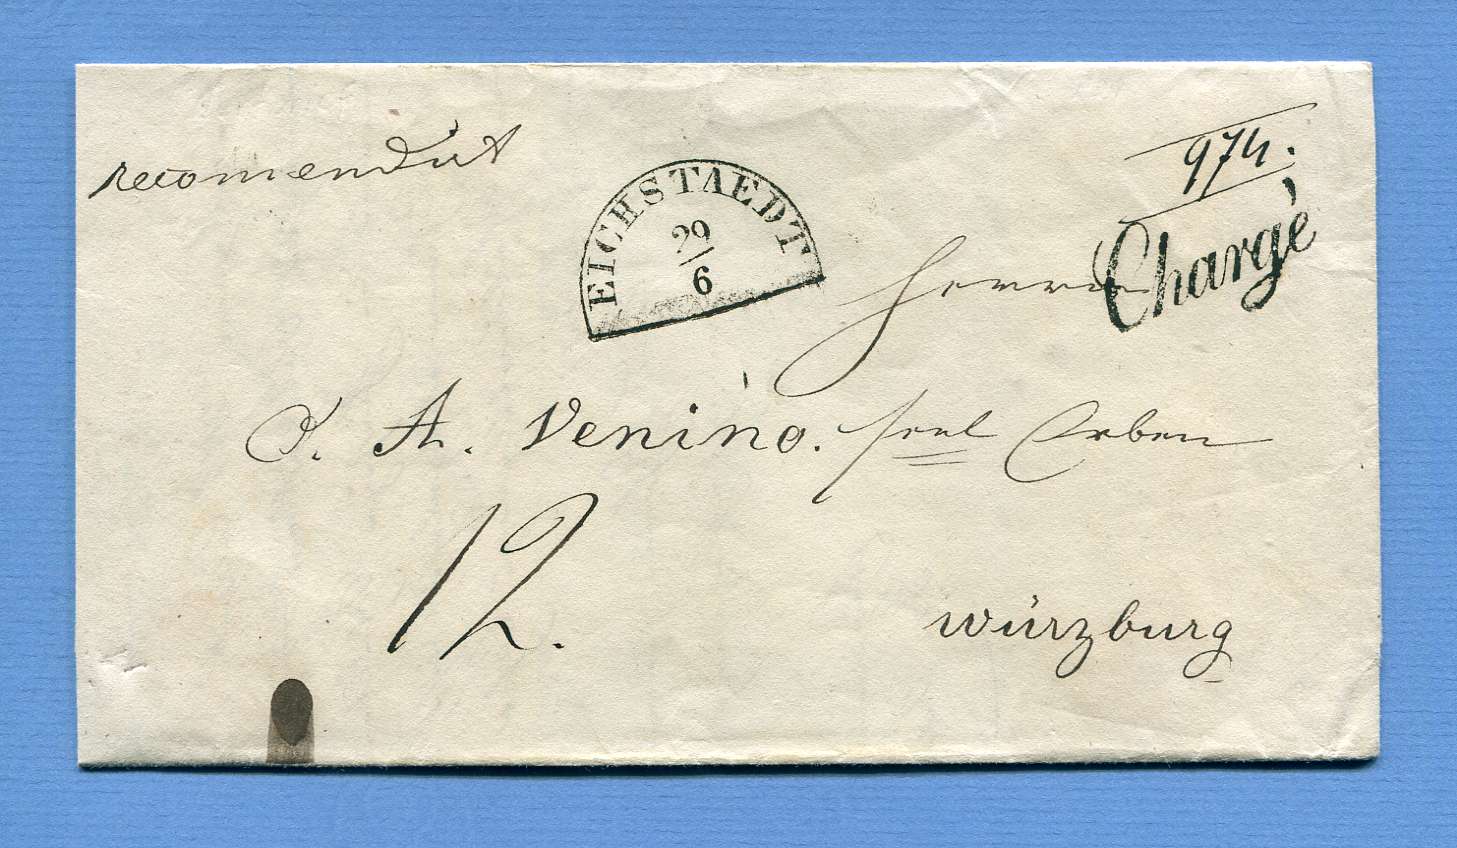 recomendirt
974.
EICHSTAEDT
29
6
Chargé
Herrn
J. A. Venino. seel Erben
12.
Würzburg